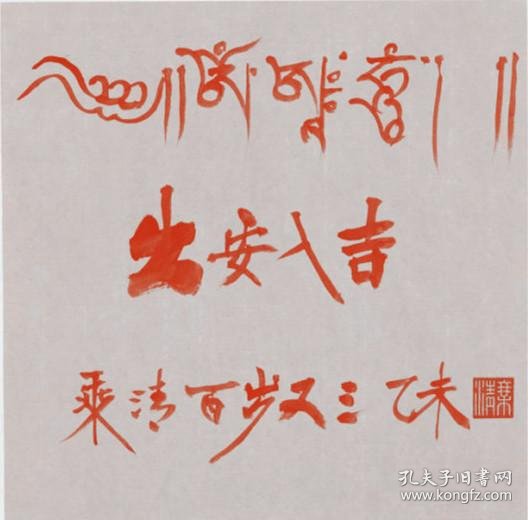 出安入吉
乘清百岁又三 乙未
乘清
孔夫子旧书网
www.kongfz.com